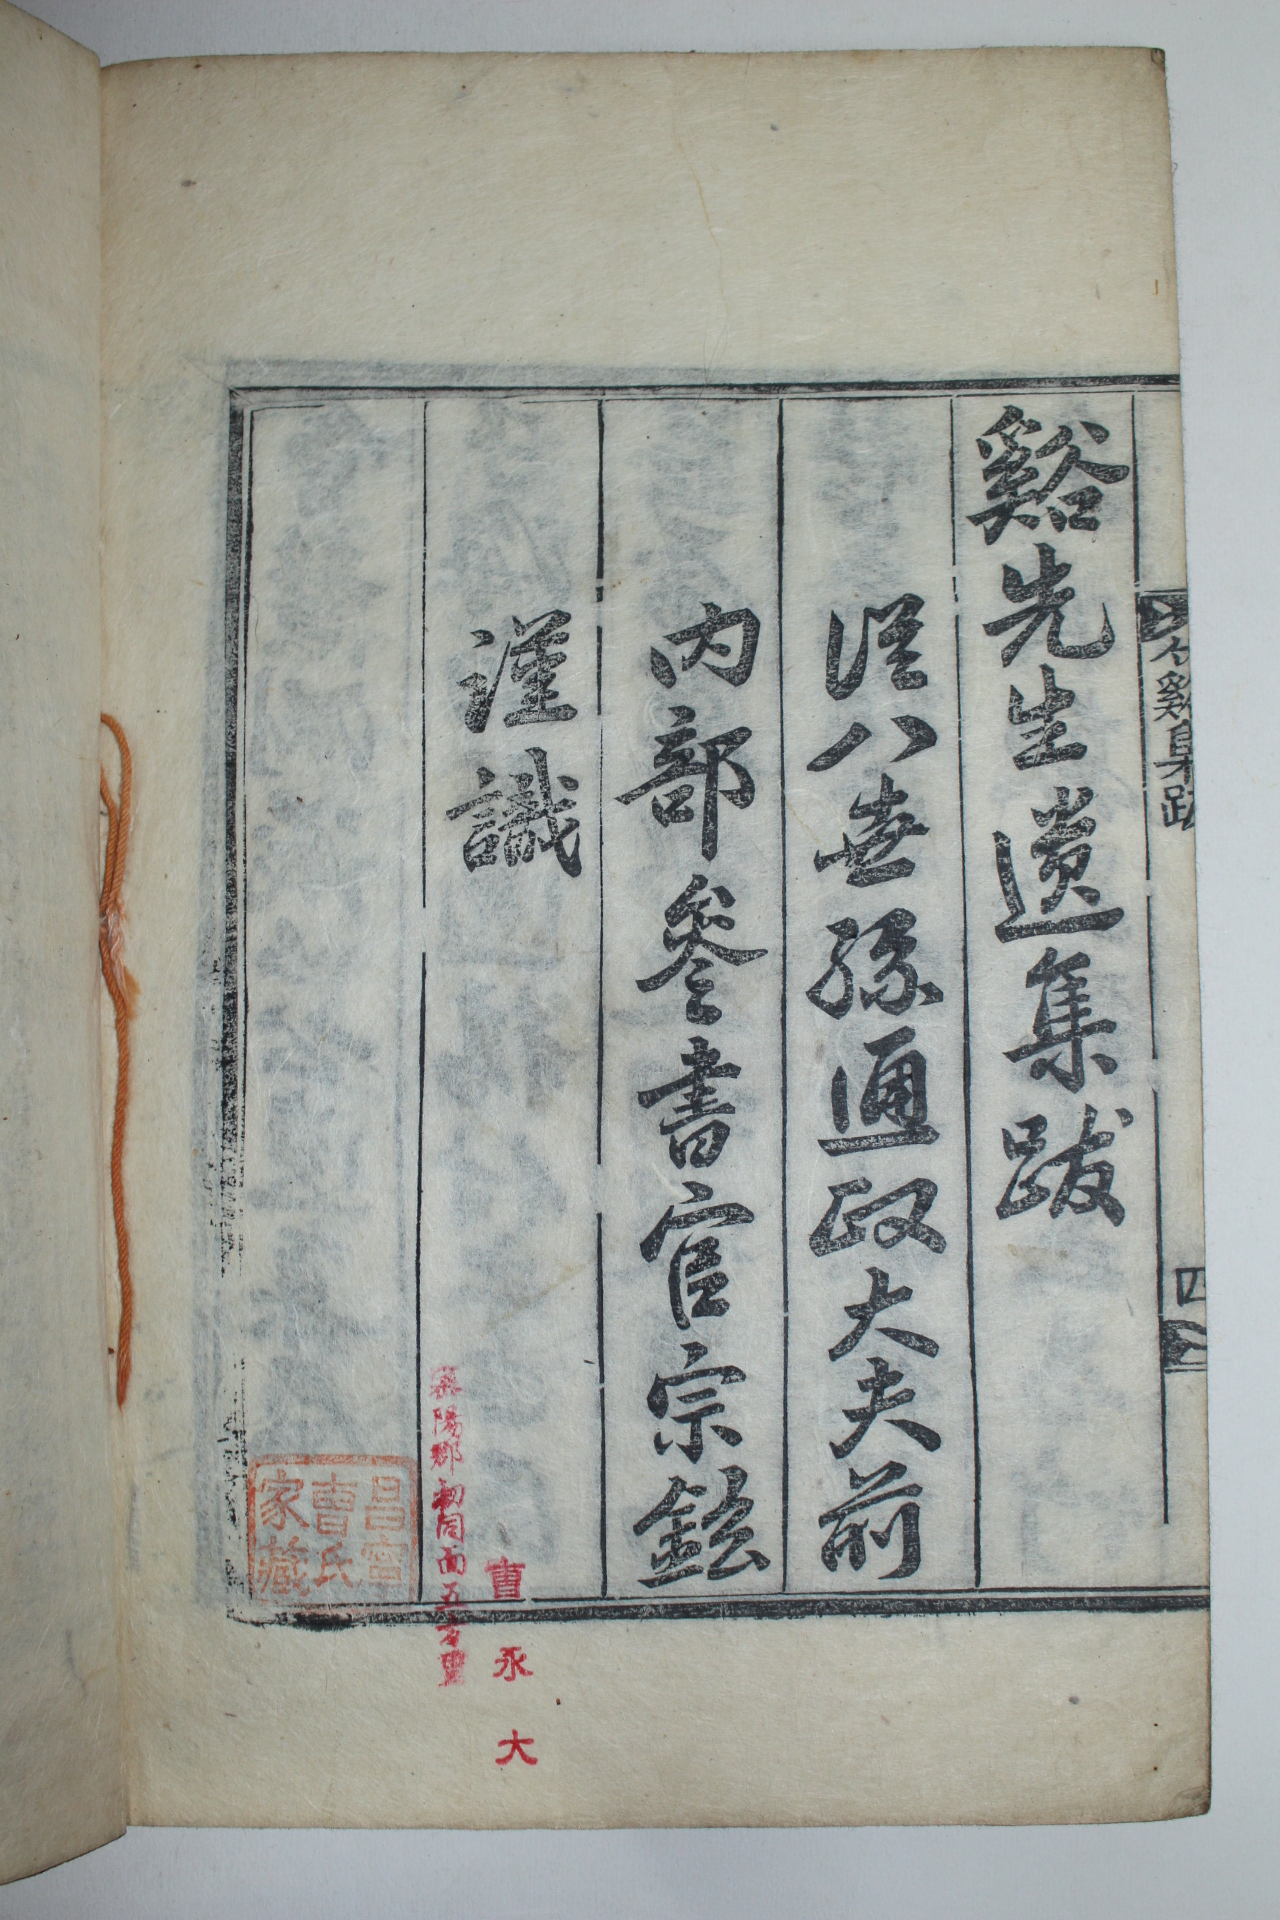 谿先生遺集跋
從八世孫通政大夫前
內部參書官宗鉉
謹識
谿集跋
四
昌寧
曺氏
家藏
陽郡初同面五方里
曺永大